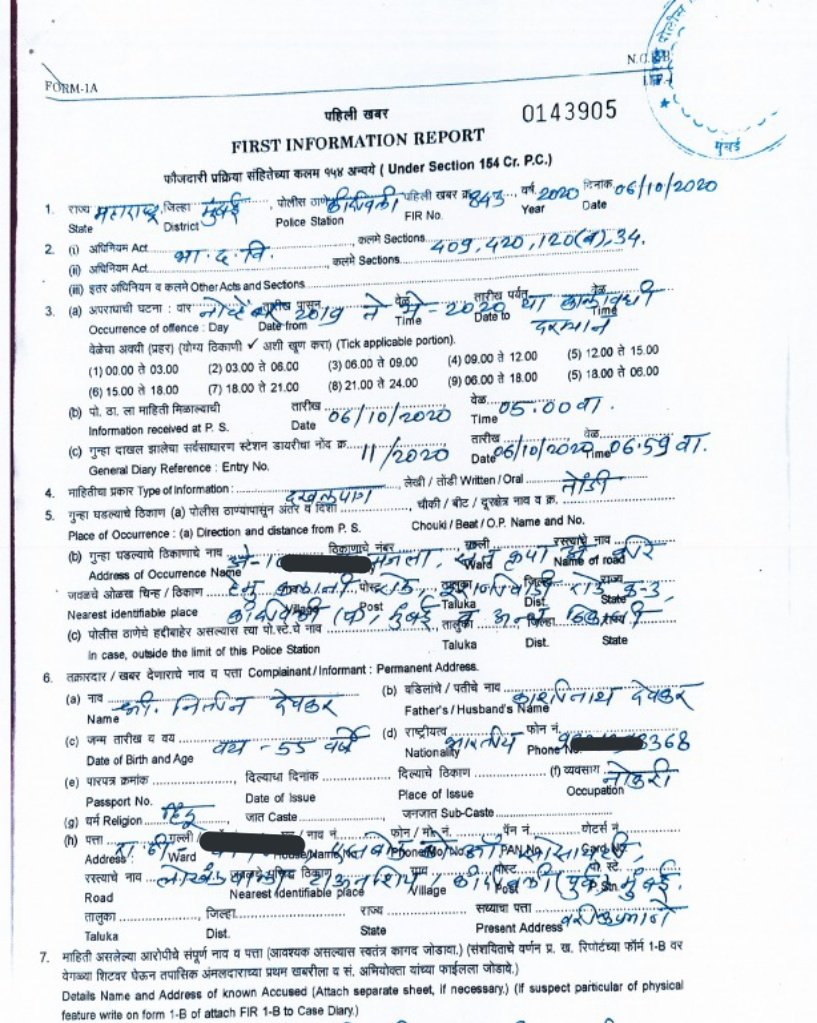 FORM-1A
N.C.R.B.
मुंबई
पहिली खबर
0143905
FIRST INFORMATION REPORT
फौजदारी प्रक्रिया संहितेच्या कलम १५४ अन्वये ( Under Section 154 Cr. P.C.)
1. राज्य महाराष्ट्र जिल्हा मुंबई, पोलीस ठाणे कांदिवली पहिली खबर क्र. 843 वर्ष 2020 दिनांक 06/10/2020
State District Police Station FIR No. Year Date
2. (i) अधिनियम Act भा.द.वि. , कलमे Sections 409, 420, 120(ब), 34.
(ii) अधिनियम Act , कलमे Sections
(iii) इतर अधिनियम व कलमे Other Acts and Sections
3. (a) अपराधाची घटना : वार नोव्हेंबर तारीख पासून 2019 ते वेळ मे-2020 तारीख पर्यंत या वेळ कालावधी
Occurrence of offence : Day Date from Time Date to दरम्यान Time
वेळेचा अवधी (प्रहर) (योग्य ठिकाणी ✓ अशी खूण करा) (Tick applicable portion).
(1) 00.00 ते 03.00 (2) 03.00 ते 06.00 (3) 06.00 ते 09.00 (4) 09.00 ते 12.00 (5) 12.00 ते 15.00
(6) 15.00 ते 18.00 (7) 18.00 ते 21.00 (8) 21.00 ते 24.00 (9) 06.00 ते 18.00 (5) 18.00 ते 06.00
(b) पो. ठा. ला माहिती मिळाल्याची तारीख 06/10/2020 वेळ 05.00 वा.
Information received at P. S. Date Time
(c) गुन्हा दाखल झालेचा सर्वसाधारण स्टेशन डायरीचा नोंद क्र. 11/2020 तारीख 06/10/2020 वेळ 06.59 वा.
General Diary Reference : Entry No. Date Time
4. माहितीचा प्रकार Type of Information : दखलपात्र , लेखी / तोंडी Written / Oral तोंडी
5. गुन्हा घडल्याचे ठिकाण (a) पोलीस ठाण्यापासून अंतर व दिशा , चौकी / बीट / दूरक्षेत्र नाव व क्र.
Place of Occurrence : (a) Direction and distance from P. S. Chouki / Beat / O.P. Name and No.
(b) गुन्हा घडल्याचे ठिकाणाचे नाव ठिकाणाचे नंबर मजला, गल्ली रस्त्याचे नाव
Address of Occurrence Name Ward Name of road
जवळचे ओळख चिन्ह / ठिकाण पोस्ट तालुका जिल्हा रोड राज्य
Nearest identifiable place Village Post Taluka Dist. State
कांदिवली मुंबई व अन्य ठिकाणी
(c) पोलीस ठाणेचे हद्दीबाहेर असल्यास त्या पो.स्टे.चे नाव तालुका जिल्हा राज्य
In case, outside the limit of this Police Station Taluka Dist. State
6. तक्रारदार / खबर देणाराचे नाव व पत्ता Complainant / Informant : Permanent Address.
(a) नाव श्री. नितीन देवकर (b) वडिलांचे / पतीचे नाव काशिनाथ देवकर
Name Father's / Husband's Name
(c) जन्म तारीख व वय वय - 55 वर्षे (d) राष्ट्रीयत्व भारतीय फोन नं. 3368
Date of Birth and Age Nationality Phone No.
(e) पारपत्र क्रमांक दिल्याचा दिनांक दिल्याचे ठिकाण (f) व्यवसाय नोकरी
Passport No. Date of Issue Place of Issue Occupation
(g) धर्म Religion हिंदू जात Caste जनजात Sub-Caste
(h) पत्ता गल्ली / नाव नं. फोन / मो. नं. पॅन नं. वोटर्स नं.
Address : Ward House/Name No. Phone/Mo/No. PAN No. Card No.
रस्त्याचे नाव लोखंडवाला जवळचे प्रसिद्ध ठिकाण टाऊनशिप, गाव कांदिवली पोस्ट (पूर्व), पो. स्टे. मुंबई.
Road Nearest identifiable place Village Post P. Stn.
तालुका , जिल्हा राज्य सध्याचा पत्ता वरीलप्रमाणे
Taluka Dist. State Present Address
7. माहिती असलेल्या आरोपीचे संपूर्ण नाव व पत्ता (आवश्यक असल्यास स्वतंत्र कागद जोडावा.) (संशयिताचे वर्णन प्र. ख. रिपोर्टच्या फॉर्म 1-B वर
वेगळ्या शिटवर घेऊन तपासिक अंमलदाराच्या प्रथम खबरीला व सं. अभियोक्ता यांच्या फाईलला जोडावे.)
Details Name and Address of known Accused (Attach separate sheet, if necessary.) (If suspect particular of physical
feature write on form 1-B of attach FIR 1-B to Case Diary.)